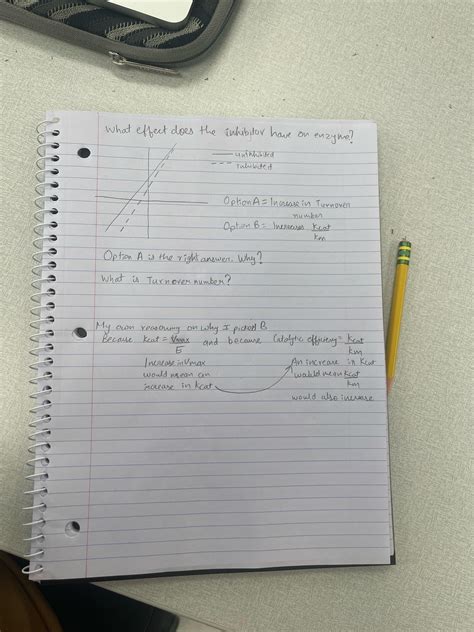 What effect does the inhibitor have on enzyme?
— uninhibited
--- Inhibited
Option A = Increase in Turnover
number
Option B = Increases Kcat
Km
Option A is the right answer. Why?
What is Turnover number?
My own reasoning on why I picked B
Because Kcat = Vmax and because Catalytic efficiency = Kcat
E Km
Increase in Vmax An increase in Kcat
would mean an would mean Kcat
increase in Kcat Km
would also increase